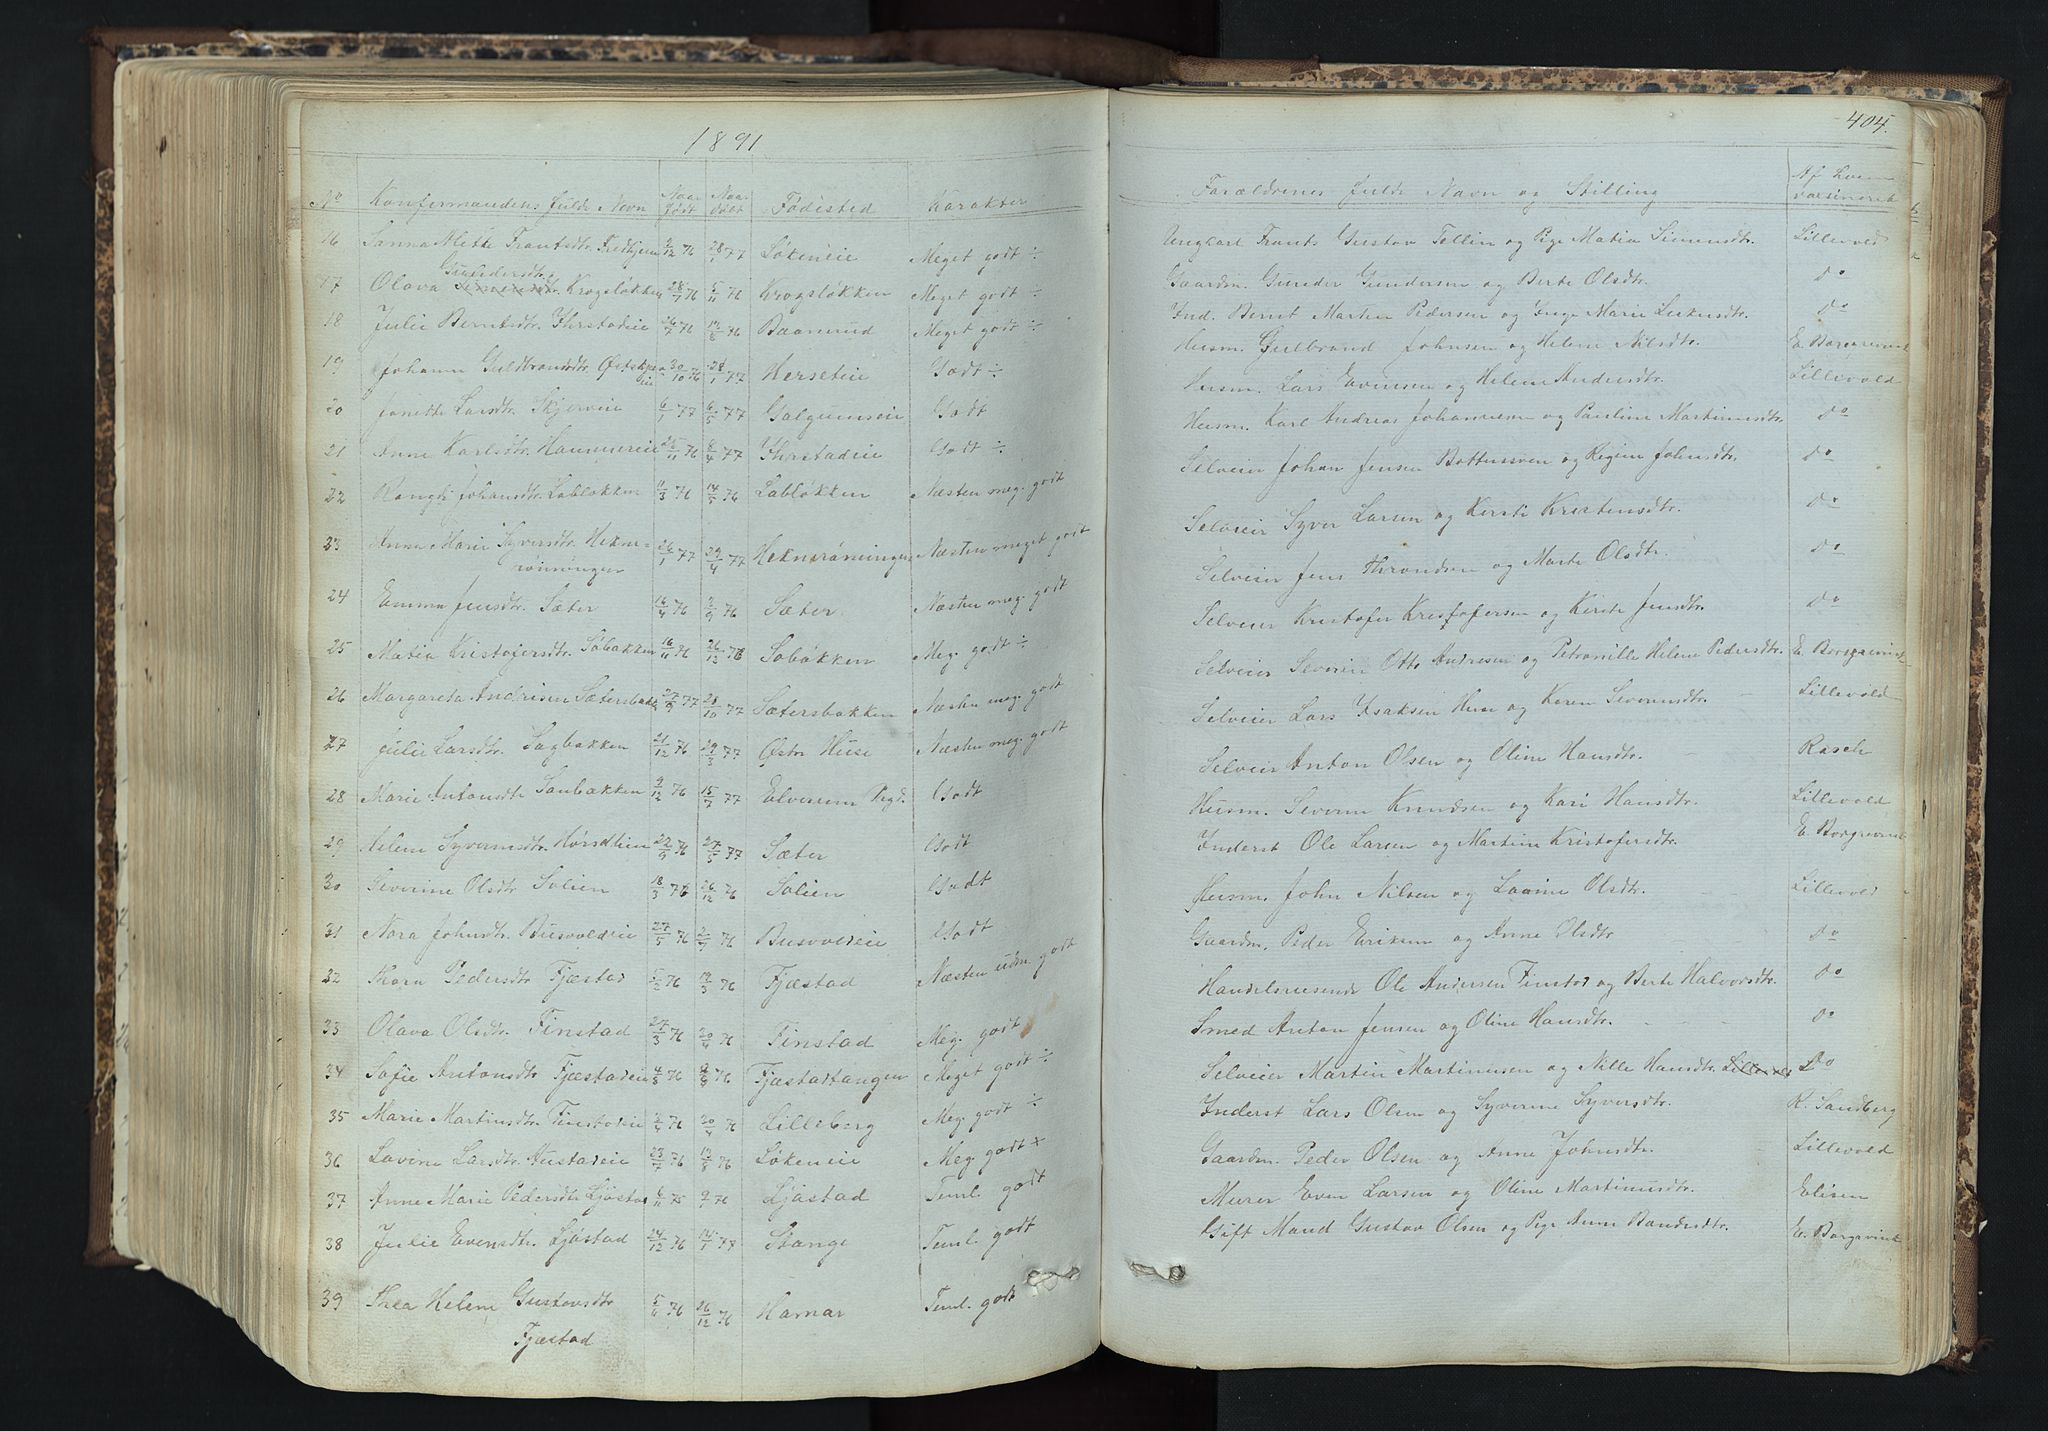 1891
No
Konfirmandens fulde Navn
Naar født
Naar døbt
Fødested
Karakter
16 Sanna Mette Frantsdtr. 2/12 76 28/1 77 Løkeneie Meget godt ÷
Gundersdtr.
17 Olava Krogsløkken 28/7 76 5/11 76 Krogsløkken Meget godt ÷
18 Julie Berntsdtr. Thrstadeie 26/7 76 Baanrud Meget godt ÷
19 Johanne Guldbrandsdtr. 30/10 76 28/1 77 Herseteie Godt ÷
20 Larsdtr. Skjerveie 6/1 77 6/5 77 Galgumseie Godt
21 Anne Karlsdtr. Hammereie 25/11 76 8/4 77 Thrstadeie Godt ÷
22 Johansdtr. Labløkken 11/3 76 14/5 76 Labløkken Næsten meg. godt
23 Anne Marie Syversdtr. Hekne-
rønningen 26/1 77 29/4 77 Heknerønningen Næsten meget godt
24 Emma Jensdtr. Sæter 16/4 76 2/9 76 Sæter Næsten meg. godt
25 Matea Kristofersdtr. Søbakken 16/11 76 26/12 76 Søbakken Meg. godt ÷
26 Margareta Andrisen Sætersbakk. 77 28/10 77 Sætersbakken Næsten meg. godt
27 Julie Larsdtr. Sagbakken 21/12 76 29/3 77 Østr. Huse Næsten meg. godt
28 Marie Antonsdtr. Saubakken 9/12 76 15/7 77 Elverum Godt
29 Helene 22/9 76 27/5 77 Sæter Godt
30 Severine Olsdtr. Solien 18/3 76 26/12 76 Solien Godt
31 Nora Johnsdtr. Busvoldeie 27/5 76 2/7 76 Busvoldeie Godt
32 Thora Pedersdtr. Fjæstad 5/2 76 12/3 76 Fjæstad Næsten udm. godt
33 Olava Olsdtr. Finstad 27/3 76 20/4 76 Finstad Meg. godt
34 Sofie Antonsdtr. Fjæstadeie 4/8 76 Fjæstadtangen Meget godt ÷
35 Marie Martinsdtr. Finstadeie 2/4 76 20/4 76 Lilleberg Meg. godt ÷
36 Lovine Larsdtr. Austadeie 23/7 76 13/8 76 Løkeneie Meg. godt ÷
37 Anne Marie Pedersdtr. Ljøstad 6/11 75 2/9 76 Ljøstad Teml. godt
38 Julie Evensdtr. Ljøstad 24/12 76 14/1 77 Stange Teml. godt
39 Thea Helene Gustavsdtr.
Fjæstad 5/6 76 26/12 76 Hamar Teml. godt
404.
Forældrenes fulde Navn og Stilling
Af hvem vaksineret
Ungkarl Frants Gustav Tellin og Pige Matea Simensdtr. Lillevold
Gaardm. Gunder Gundersen og Berte Olsdtr. do
Ind. Bernt Martin Pedersen og Inge Marie do
Husm. Gulbrand Johnsen og Helene Nilsdtr. E. Borgrevink
Husm. Lars Evensen og Helene Andersdtr. Lillevold
Husm. Karl Andreas Johannesen og Pauline Martinusdtr. do
Selveier Johan Jensen og Regine Johnsdtr. do
Selveier Syver Larsen og Kersti Kristensdtr. do
Selveier Jens Throndsen og Marte Olsdtr. do
Selveier Kristofer Kristofersen og Kirste Jensdtr. do
Selveier Severin Otto Andresen og Petronille Helene Pedersdtr. E. Borgrevink
Selveier Lars Isaksen Huse og Karen Severinsdtr. Lillevold
Selveier Anton Olsen og Oline Hansdtr. Rasch
Husm. Severin Knudsen og Kari Hansdtr. Lillevold
Inderst Ole Larsen og Martine Kristofersdtr. E. Borgrevink
Husm. John Nilsen og Lovine Olsdtr. Lillevold
Gaardm. Peder Eriksen og Anne Olsdtr. do
Handelsreisende Ole Andersen Finstad og Berte Halvorsdtr. do
Smed Anton Jensen og Oline Hansdtr. do
Selveier Martin Martinusen og Nille Hansdtr. Lillevold Do
Inderst Lars Olsen og Syverine Syversdtr. K. Sandberg
Gaardm. Peder Olsen og Anne Johnsdtr. Lillevold
Murer Even Larsen og Oline Martinusdtr. Elisen
Gift Mand Gustav Olsen og Pige Anne E. Borgrevink